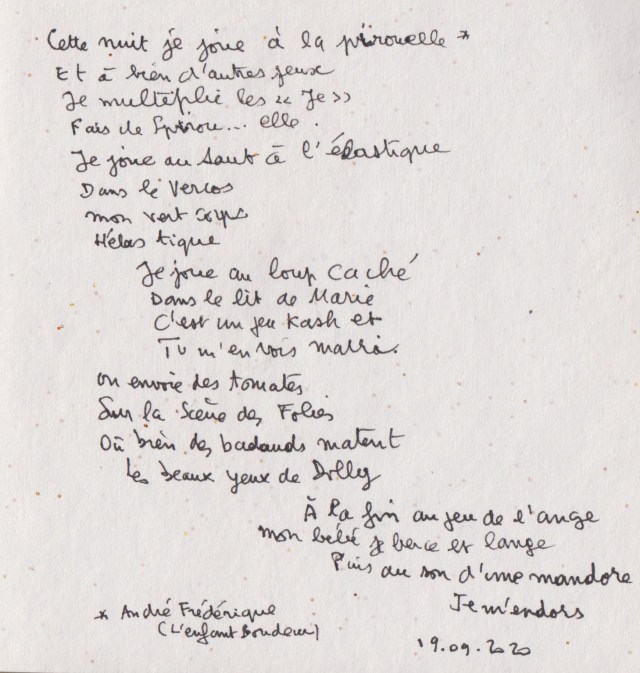 Cette nuit je joue à la pirouelle *
Et à bien d'autres jeux
Je multiplie les « Je »
Fais de Spirou... elle.
Je joue au saut à l'élastique
Dans le Vercos
mon vert corps
Hélas tique
Je joue au loup caché
Dans le lit de Marie
C'est un jeu Kash et
Tu m'en vois marri.
On envoie des tomates
Sur la Scène des Folies
Où bien des badauds matent
Les beaux yeux de Dolly
À la fin au jeu de l'ange
mon bébé je berce et lange
Puis au son d'une mandore
Je m'endors
* André Frédérique
(L'enfant Boudeur)
19.09.2020